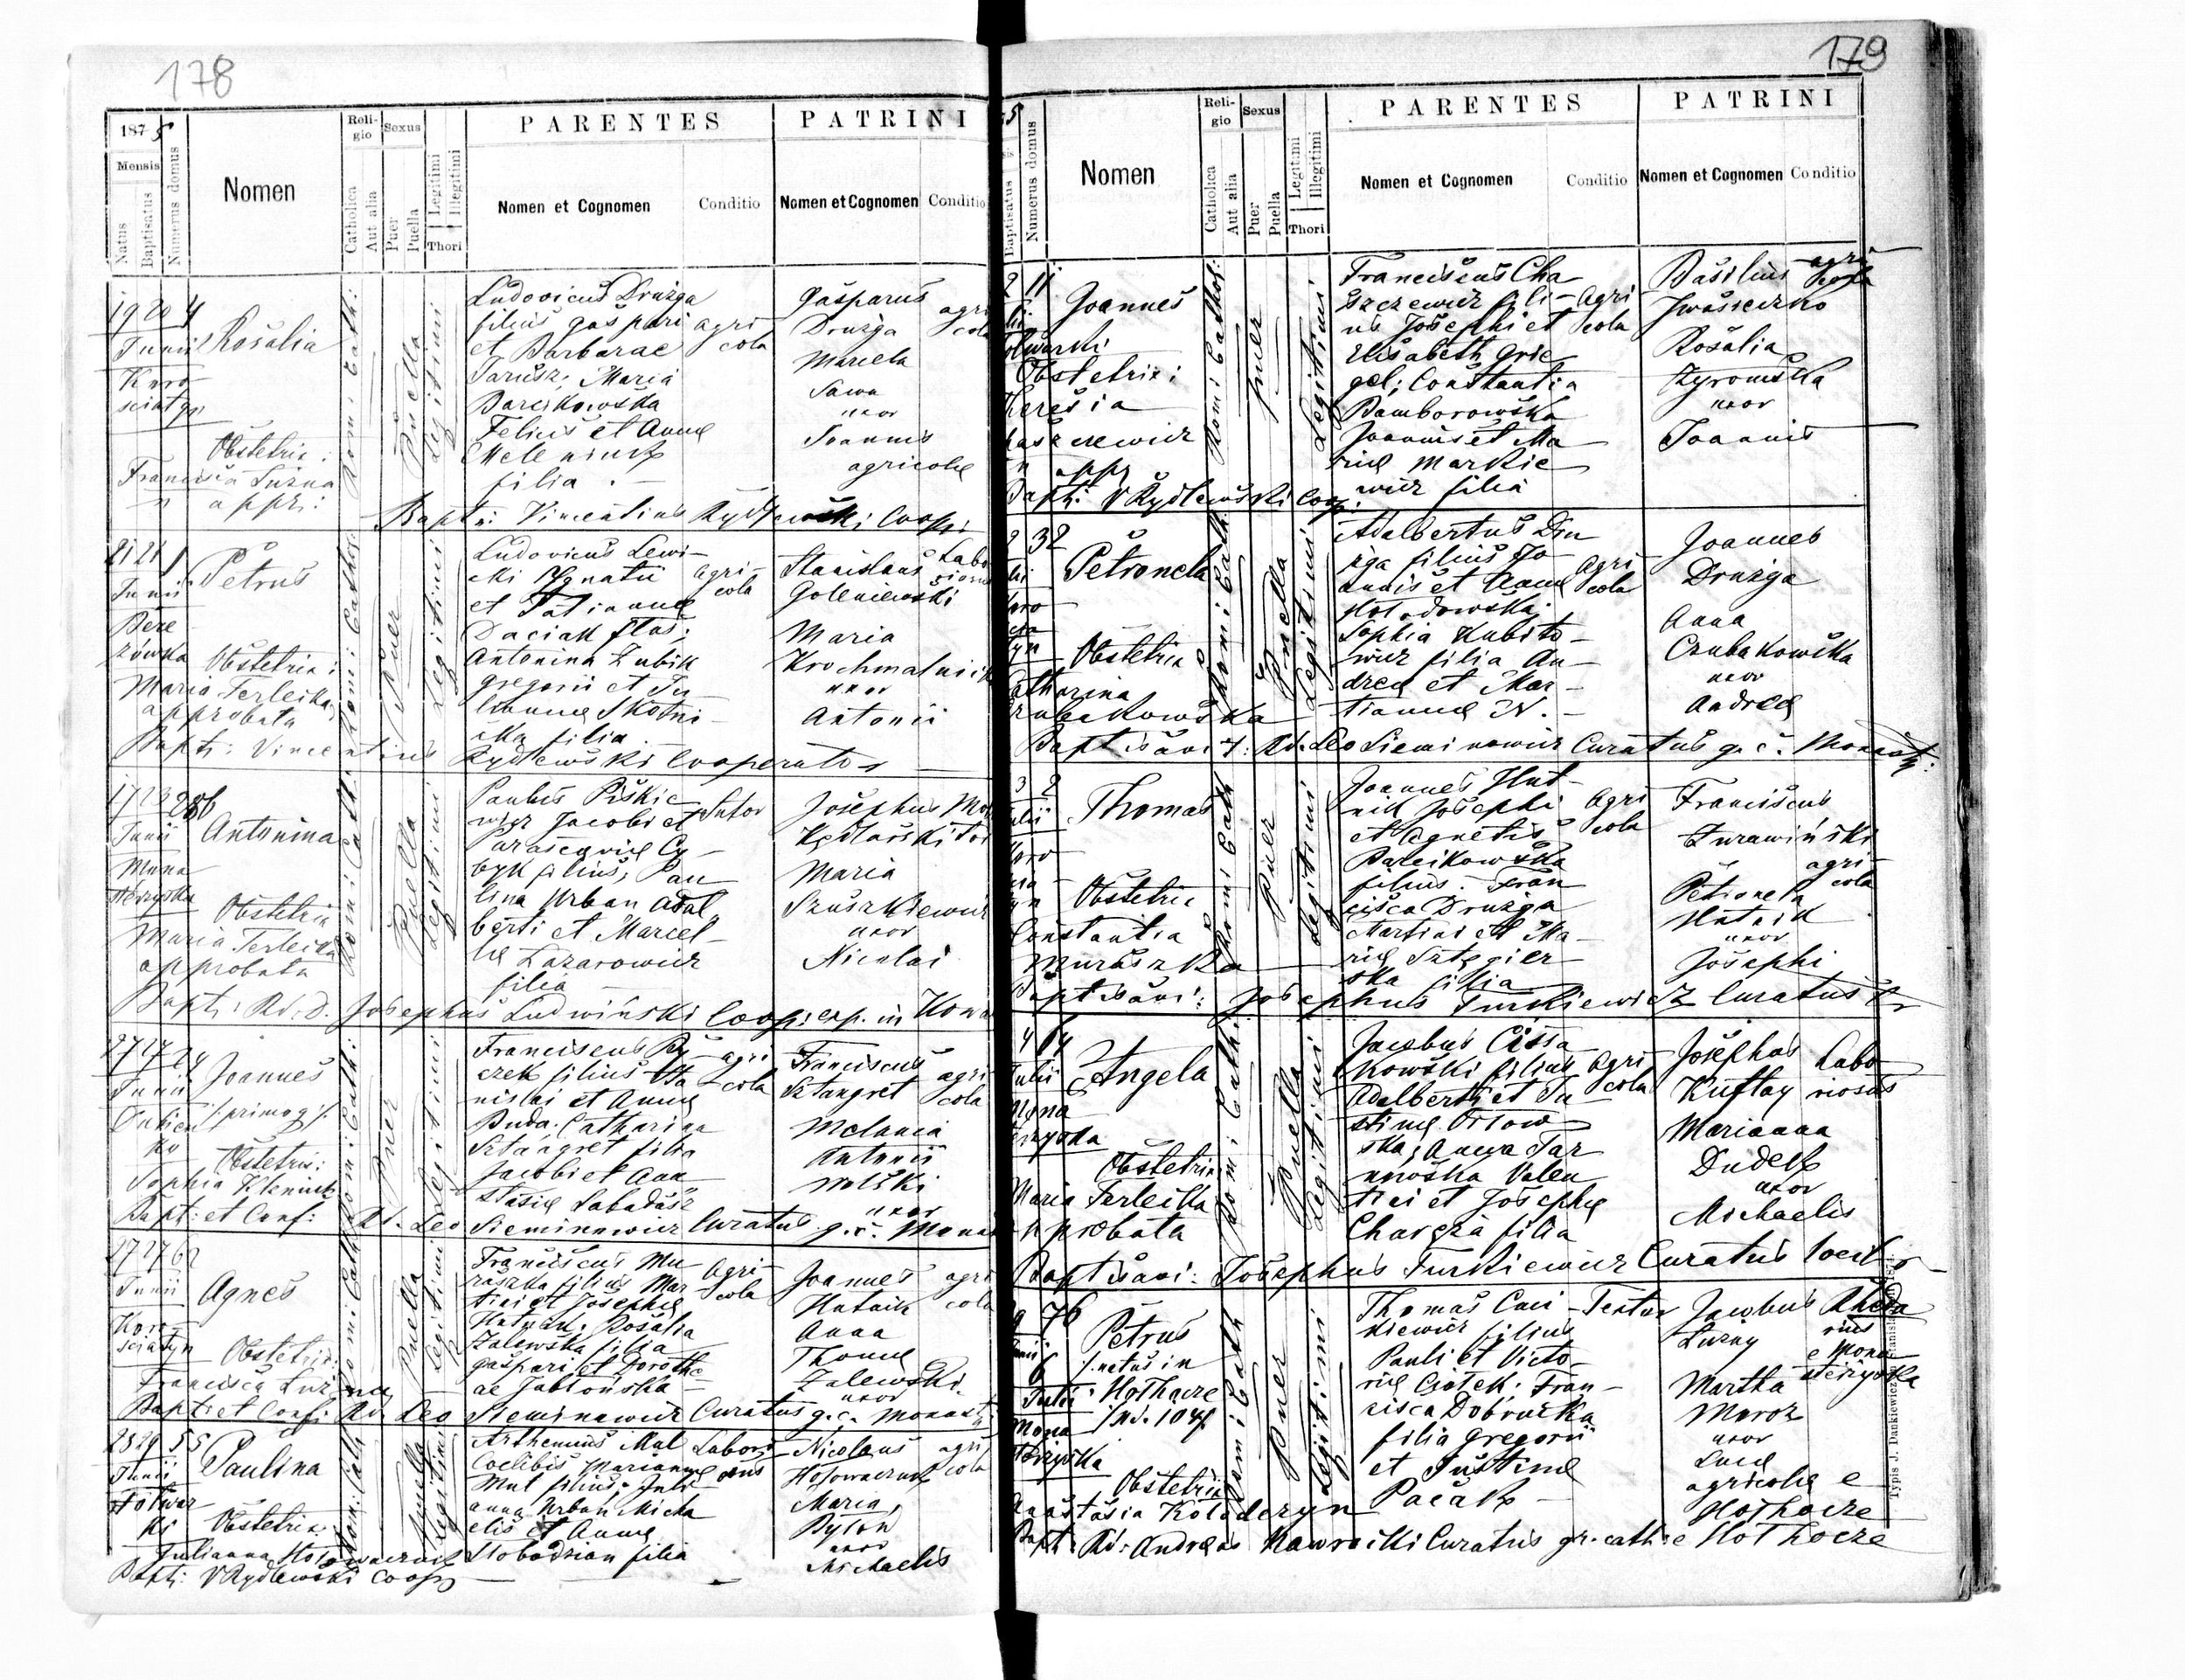 178
187 5
Mensis
Natus
Baptisatus
Numerus domus
Nomen
Religio
Catholica
Aut alia
Sexus
Puer
Puella
Legitimi
Illegitimi
Thori
PARENTES
Nomen et Cognomen
Conditio
PATRINI
Nomen et Cognomen
Conditio
19 20 4
Junii
Koro
sciatyn
Rosalia
Obstetrix:
Francisca Luzna
n appr:
Romi: Cath:
Puella
Legitimi
Ludovicus Druzga
filius Gaspari
et Barbarae
Tarusz; Maria
Barcikowska
Felicis et Annae
Meleniuk
filia .
agri
cola
Gasparus
Druzga
Marcela
Sawa
uxor
Joannis
agricolae
agri
cola
Bapt: Vincentius Rydlewski Coop:
21 21 1
Junii
Bere
zówka
Petrus
Obstetrix:
Maria Terlecka
approbata
Romi: Cath:
Puer
Legitimi
Ludovicus Lewi-
cki Ignatii
et Tatiannae
Daciak filius;
Antonina Zubik
Gregorii et Ju-
liannae Skotni-
cka filia
agri-
cola
Stanislaus
Goleniewski
Maria
Krochmalnik
uxor
Antonii
Bapt: Vincentius Rydlewski Cooperator
17 23 286
Junii
Mona
sterzyska
Antonina
Obstetrix
Maria Terlecka
approbata
Romi Cath:
Puella
Legitimi
Paulus Piskie
wicz Jacobi et
Parascevie Cy-
byk filius; Pau
lina Urban Adal
berti et Marcel-
lae Lazarowicz
filia
Sutor
Josephus
Kędlarski
Maria
Szuszkiewicz
uxor
Nicolai
Bapt: Rd. D. Josephus Ludwiński Coop: exp. in Kowa
27 27 24
Junii
Joannes
/:primog:/
Obstetrix:
Sophia Kleniuk
Romi: Cath:
Puer
Legitimi
Franciscus By-
czek filius Sta
nislai et Annae
Buda. Catharina
Sztangret filia
Jacobi et Ana
stasiae Sabadasz
agri
cola
Franciscus
Sztangret
Melania
Antonii
Wolski
uxor
agri
cola
Bapt: et Conf: Rd. Leo Sieminowicz Curatus g. c. Monas
27 27 62
Junii
Koro-
sciatyn
Agnes
Obstetrix:
Francisca Luzna
Romi Cath
Puella
Legitimi
Franciscus Mu
raszka filius Mar
tini et Josephae
Hutnik. Rosalia
Zalewska filia
Gaspari et Dorothe
ae Jablońska
Agri-
cola
Joannes
Hutnik
Anna
Thomae
Zalewski
uxor
agri
cola
Bapt: et Conf: Rd. Leo Sieminowicz Curatus g. c. Monast:
28 29 55
Junii
Folwar
ki
Paulina
Obstetrix
Julianna Hołowaczuk
Rom: Cath
Puella
Legitimi
Arthemius Mul
Coelibis Mariannae
Mul filius; Juli
anna Urban Micha
elis et Annae
Slobodzian filia
Labori
osus
Nicolaus
Hołowaczuk
Maria
Byton
uxor
Michaelis
agri
cola
Bapt: V Rydlewski Coop
179
5
Baptisatus
Numerus domus
Nomen
Religio
Catholica
Aut alia
Sexus
Puer
Puella
Legitimi
Illegitimi
Thori
PARENTES
Nomen et Cognomen
Conditio
PATRINI
Nomen et Cognomen
Conditio
2 11
Joannes
Obstetrix:
Romi Cathol:
Puer
Legitimi
Franciscus Cha
szczewicz fili-
us Josephi et
Elisabeth Grie
gel; Constantia
Bamborowska
Joannis et Ma
riae Markie
wicz filia
Agri
cola
Basilius
Iwasieczko
Rosalia
Zyromska
uxor
Joannis
agri
cola
Bapt: V Rydlewski Coop:
2 32
Petronela
Obstetrix
Catharina
Czubakowska
Romi Cath
Puella
Legitimi
Adalbertus Dru
zga filius Jo-
annis et Annae
Hołodowska;
Sophia Kubito-
wicz filia An-
dreae et Mar-
tiannae N. -
Agri
cola
Joannes
Druzga
Anna
Czubakowska
uxor
Andreae
Baptisavit: Rd. Leo Sieminowicz Curatus g. c. Monast:
3 2
Thomas
Obstetrix
Constantia
Muraszka
Romi Cath
Puer
Legitimi
Joannes Hut-
nik Josephi
et Agnetis
Barcikowska
filius. Fran
cisca Druzga
Martini et Ma-
riae Sztegier
ska filia
Agri
cola
Franciscus
Zurawiński
Petronela
Hutnik
uxor
Josephi
agri-
cola
Baptisavi: Josephus Turkiewicz Curatus
4 64
Julii
Mona
sterzyska
Angela
Obstetrix
Maria Terlecka
approbata
Romi Cath:
Puella
Legitimi
Jacobus Cissa
kowski filius
Adalberti et Ju
stinae Orłow
ska; Anna Tar
nowska Valen
tini et Josephae
Charęza filia
Agri
cola
Josephus
Kuflay
Marianna
Dudek
uxor
Michaelis
Labo
riosus
Baptisavi: Josephus Turkiewicz Curatus loci
9 76
6
Julii
Mona
sterzyska
Petrus
/:natus in
Hothocze
/Nd. 104/
Obstetrix
Anastasia Kołodczyn
Romi Cath
Puer
Legitimi
Thomas Cwi
kiewicz filius
Pauli et Victo-
riae Ciołek; Fran-
cisca Dobrucka
filia Gregorii
et Justinae
Pacak -
Textor
Jacobus
Luzny
Martha
Moroz
uxor
Lucae
agricolae e
Hothocze
e Mona
sterzyska
Bapt: Rd: Andreas Nawrocki Curatus gr. cath: e Hothocze